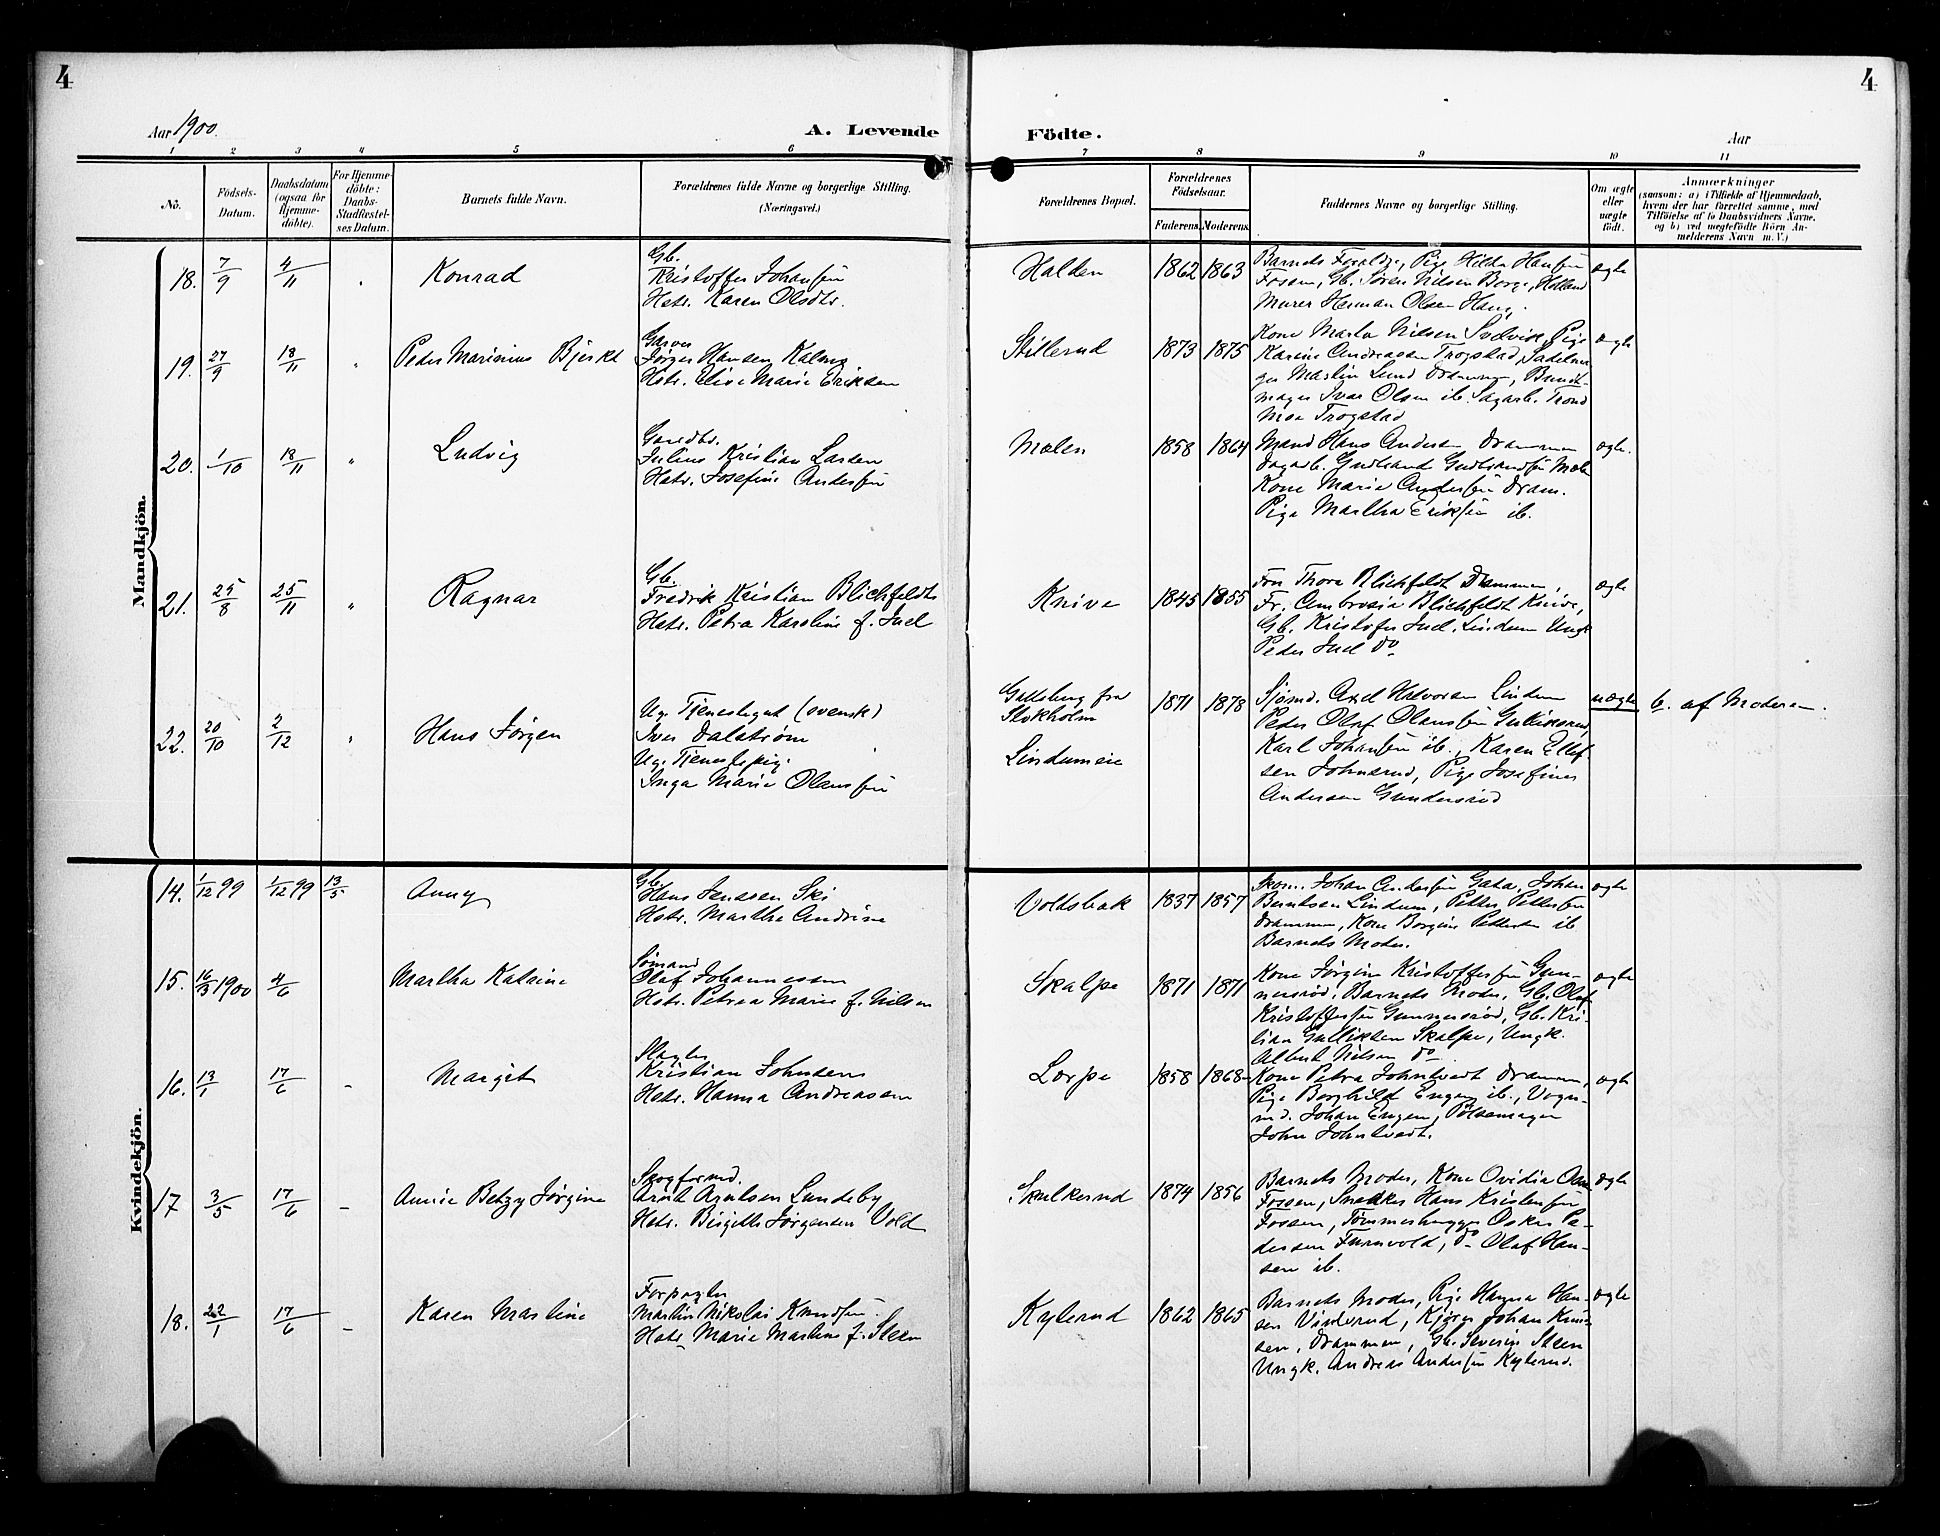 4
4
Aar 1900.
A. Levende
Födte.
Aar
1 2 3 4 5 6 7 8 9 10 11
Nö.
Födsels-
Datum.
Daabsdatum
(ogsaa for
Hjemme-
döbte).
For Hjemme-
döbte:
Daabs-
Stadfæstel-
ses Datum.
Barnets fulde Navn.
Forældrenes fulde Navne og borgerlige Stilling.
(Næringsvei.)
Forældrenes Bopæl.
Forældrenes
Födselsaar.
Faderens. Moderens.
Faddernes Navne og borgerlige Stilling.
Om ægte
eller
uægte
födt.
Anmærkninger
(saasom: a) i Tilfælde af Hjemmedaab,
hvem der har forrettet samme, med
Tilföielse af to Daabsvidners Navne,
og b) ved uægtefödte Börn An-
melderens Navn m. V.)
Mandkjön.
18. 7/9 4/11 " Konrad
Gb.
Kristoffer Johansen
Hstr. Karen Olsdtr.
Halden 1862 1863
Barnets Forældre, Pige Hilda Hansen
Fossen, Gb. Søren Nilsen Borge, Holland
Murer Herman Olsen Haug.
ægte
19. 27/9 18/11 " Peder Marinius Bjerke
Garver
Jørgen Hansen
Hstr. Elise Marie Eriksen
Stillerud 1873 1875
Kone Marta Nilsen Solvik, Pige
Karine Andreassen Trogstad, Sadelma-
ger Martin Lund Drammen, Bundt-
mager Ivar Olsen ib. Sagarb. Trond
Moe Trogstad
ægte
20. 1/10 18/11 " Ludvig
Gaardbr.
Julius Kristian Larsen
Hstr. Josefine Andersen
Mælen 1858 1864
Mand Hans Andersen Drammen
Dagarb. Gudbrand Gudbrandsen Mæle
Kone Marie Andersen Dram.
Pige Martha Eriksen ib.
ægte.
21. 25/8 25/11 " Ragnar
Gb.
Fredrik Kristian Blichfeldt
Hstr. Petra Karoline f. Juel
Knive 1845 1855
Fru Thora Blichfeldt Drammen,
Fr. Ambrosia Blichfeldt Knive,
Gb. Kristofer Juel, Lindum Ungk
Peder Juel do
ægte
22. 20/10 2/12 " Hans Jørgen
Ug. Tjenestegut (svensk)
Iver Dalstrøm
Ug. Tjenestepig.
Inga Marie Olausen
fra
Stokholm
Lindumeie
1871 1878
Sjømd. Axel Halvorsen Lindum
Peder Olaf Olausen Gulliksrud,
Karl Johansen ib., Karen Ellef-
sen Johnsrud, Pige Josefine
Andersen Gundersrød
uægte b. af Moderen.
Kvindekjön.
14. 1/12 99 1/12 99 13/5 Anny
Gb.
Hans Jenssen Ski
Hstr. Martha Andrine
Voldsbæk 1837 1857
Skom. Johan Andersen Gata, Johan
Berntsen Lindum, Petter Pettersen
Drammen, Kone Borgine Pettersen ib
Barnets Moder.
ægte
15. 16/3 1900 4/6 Martha Katrine
Sømand
Olaf Johannessen
Hstr. Petrea Marie f. Nilsen
Skalpe 1871 1871
Kone Jørgine Kristoffersen Gun-
nersrød, Barnets Moder, Gb. Olaf
Kristoffersen Gunnersrød, Gb. Kri-
stian Gulliksen Skalpe, Ungk.
Albert Nilsen do
ægte
16. 13/1 17/6 - Margit
Slagter
Kristian Johnsen
Hstr. Hanna Andreassen
Lorpe 1858 1868
Kone Petra Johntvedt Drammen,
Pige Borghild Engen ib., Vogn-
md. Johan Engen, Pølsemager
John Johntvedt.
ægte
17 3/5 17/6 - Annie Betzy Jørgine
Skogformd.
Arnt Arntsen Lundeby
Hstr. Birgitte Jørgensen Vold
Skulkerud 1874 1856
Barnets Moder, Kone Ovidia
Fossen, Snedker Hans Kristensen
Fossen, Tømmerhugger Oskar Pe-
dersen Furuvold, do Olaf Han-
sen ib.
ægte
18. 22/1 17/6 - Karen Martine
Forpagter
Martin Nikolai Knudsen
Hstr. Marie Martine f. Steen
Kylerud 1862 1865
Barnets Moder, Pige Hanna Han-
sen Vindsrud, Kjører Johan Knud-
sen, Drammen, Gb. Severin Steen
Ungk. Andreas Andersen Kylerud.
ægte